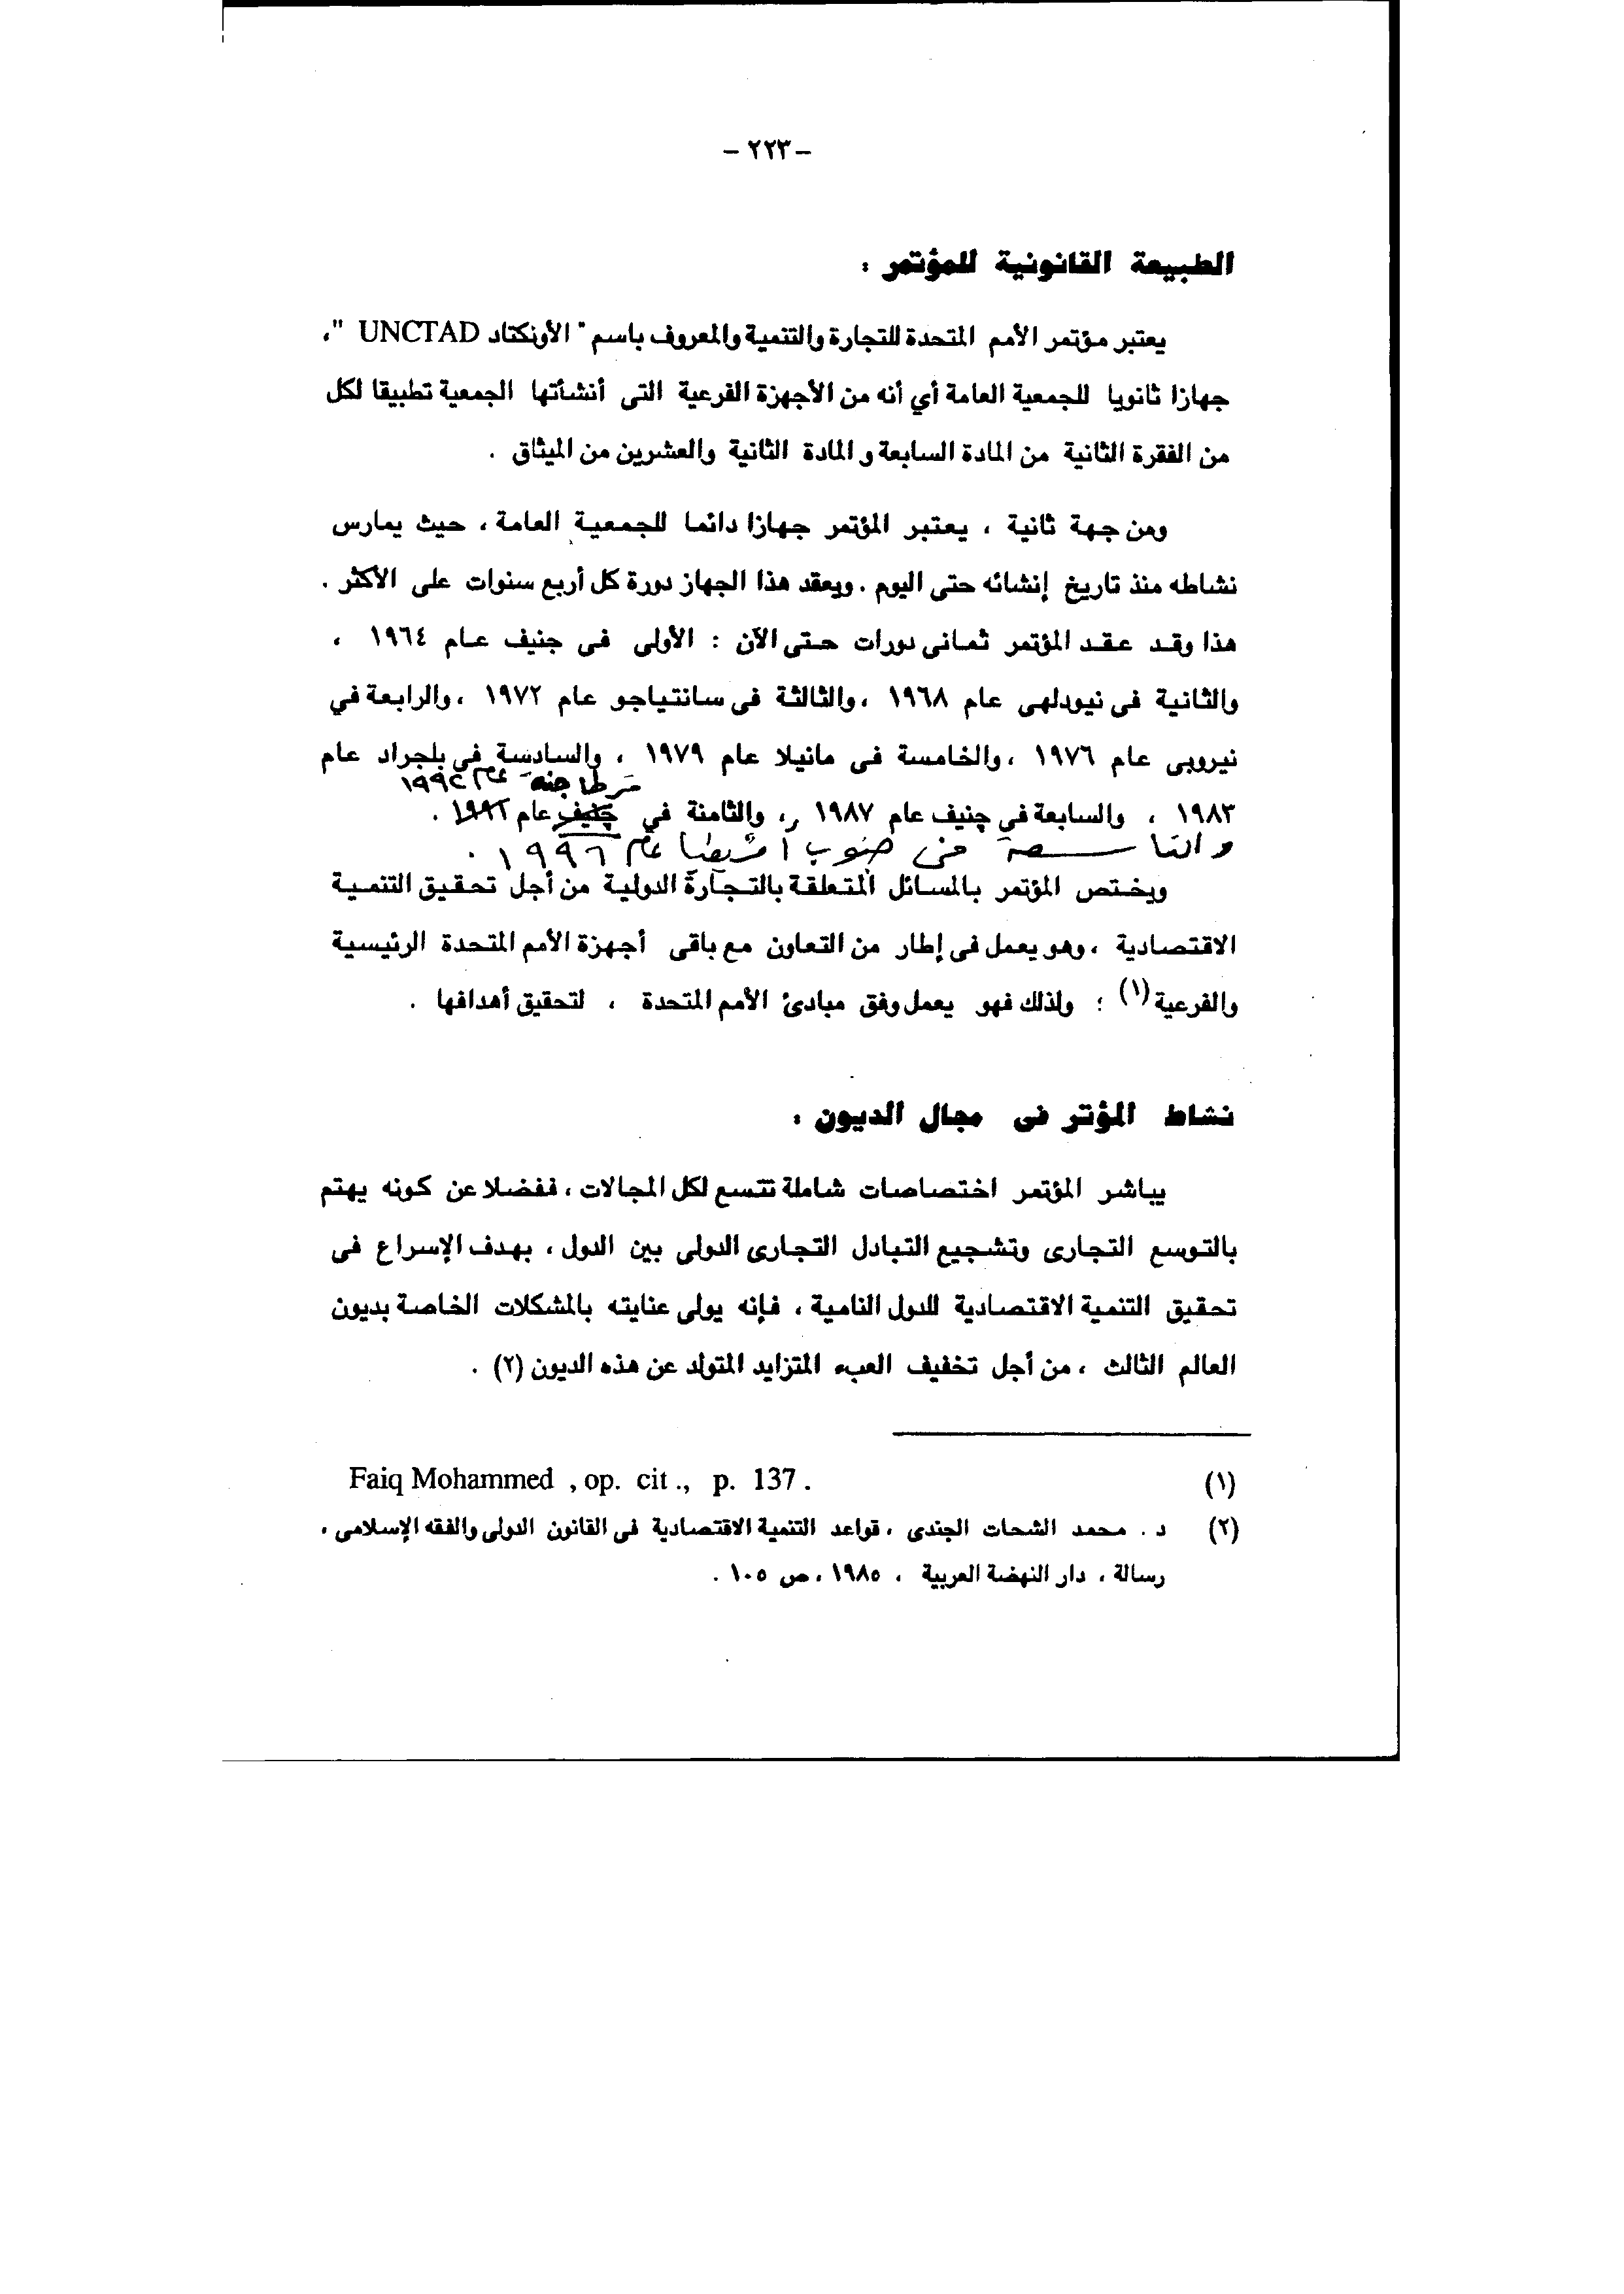 -٢٢٣ -
الطبيعة القانونية للمؤتمر :
يعتبر مؤتمر الأمم المتحدة للتجارة والتنمية والمعروف باسم " الأونكتاد UNCTAD "،
جهازا ثانويا للجمعية العامة أي أنه من الأجهزة الفرعية التى أنشأتها الجمعية تطبيقا لكل
من الفقرة الثانية من المادة السابعة و المادة الثانية والعشرين من الميثاق .
ومن جهة ثانية ، يعتبر المؤتمر جهازا دائما للجمعية العامة ، حيث يمارس
نشاطه منذ تاريخ إنشائه حتى اليوم . ويعقد هذا الجهاز دورة كل أربع سنوات على الأكثر .
هذا وقد عقد المؤتمر ثمانى دورات حتى الآن : الأولى فى جنيف عام ١٩٦٤ ،
والثانية فى نيودلهى عام ١٩٦٨ ، والثالثة فى سانتياجو عام ١٩٧٢ ، والرابعة في
نيروبى عام ١٩٧٦ ، والخامسة فى مانيلا عام ١٩٧٩ ، والسادسة في بلجراد عام
قرطاجنة عام ١٩٩٢
١٩٨٣ ، والسابعة في چنيف عام ١٩٨٧ ، والثامنة في چنيف عام ١٩٩٢ .
والتاسعة فى جنوب افريقيا عام ١٩٩٦ .
ويختص المؤتمر بالمسائل المتعلقة بالتجارة الدولية من أجل تحقيق التنمية
الاقتصادية ، وهو يعمل فى إطار من التعاون مع باقى أجهزة الأمم المتحدة الرئيسية
والفرعية (١) ؛ ولذلك فهو يعمل وفق مبادئ الأمم المتحدة ، لتحقيق أهدافها .
نشاط المؤتر فى مجال الديون :
يباشر المؤتمر اختصاصات شاملة تتسع لكل المجالات ، ففضلا عن كونه يهتم
بالتوسع التجارى وتشجيع التبادل التجارى الدولى بين الدول ، بهدف الإسراع فى
تحقيق التنمية الاقتصادية للدول النامية ، فإنه يولى عنايته بالمشكلات الخاصة بديون
العالم الثالث ، من أجل تخفيف العبء المتزايد المتولد عن هذه الديون (٢) .
(١) Faiq Mohammed , op. cit ., p. 137 .
(٢) د . محمد الشحات الجندى ، قواعد التنمية الاقتصادية فى القانون الدولى والفقه الإسلامى ،
رسالة ، دار النهضة العربية ، ١٩٨٥ ، ص ١٠٥ .